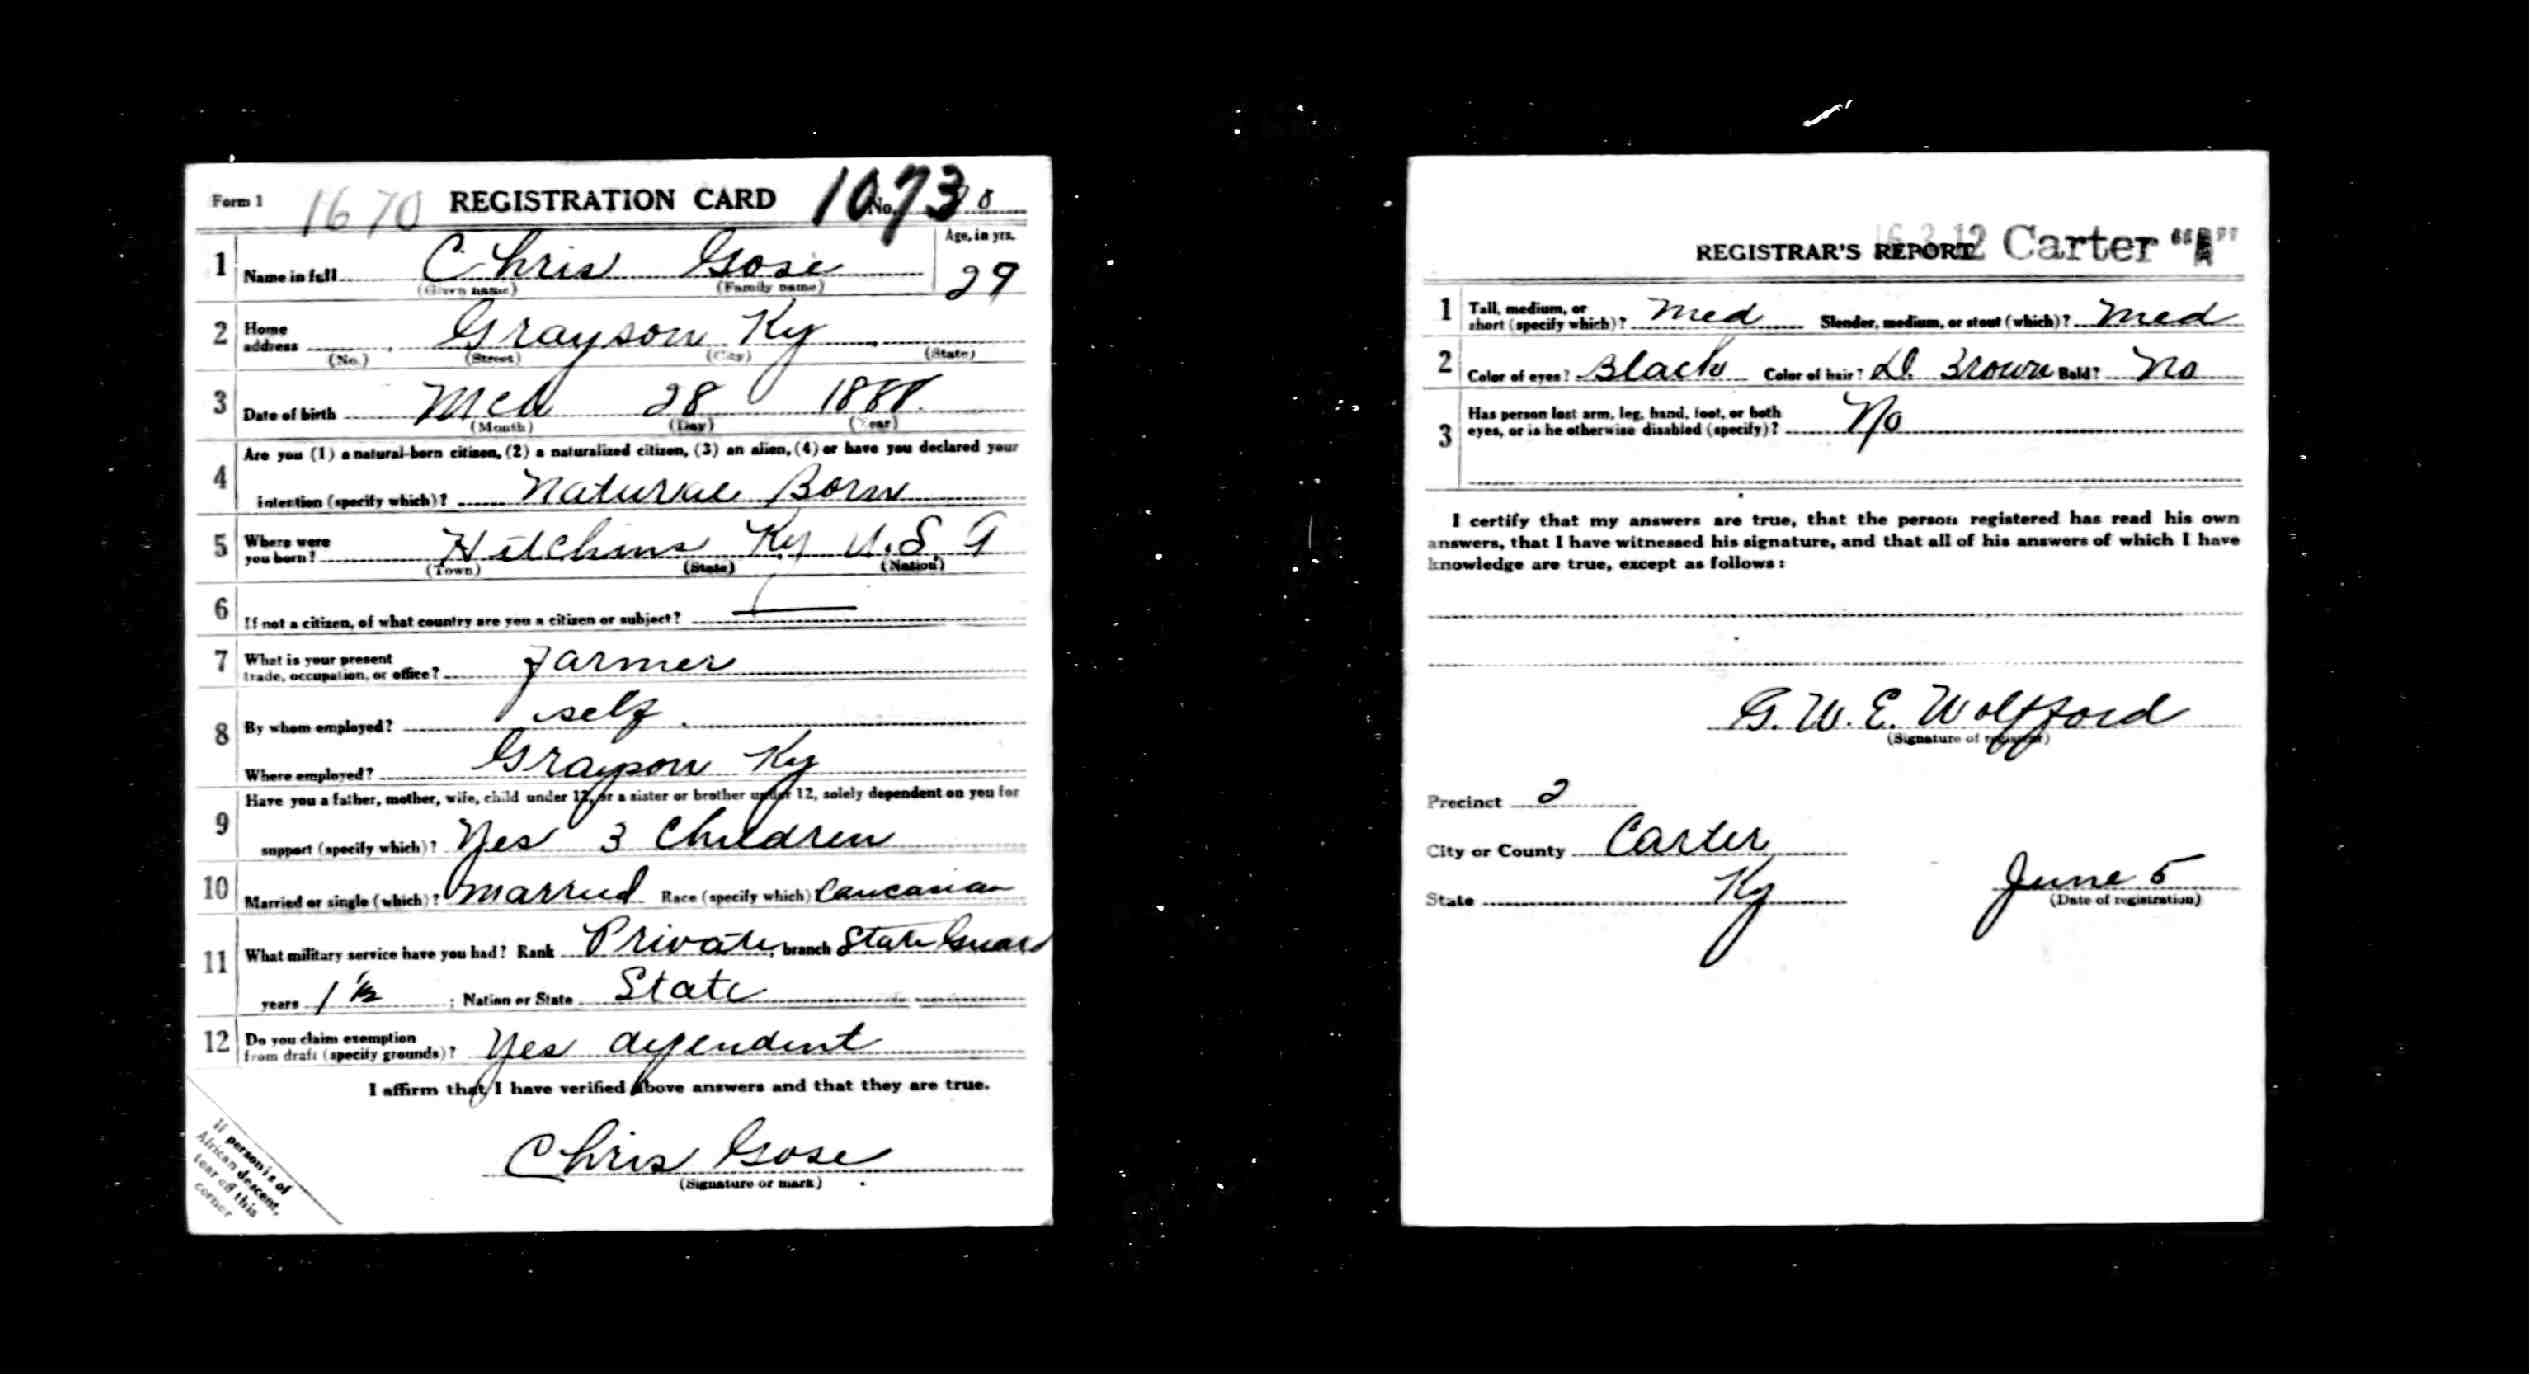 Form 1 1670 REGISTRATION CARD 1073 No.
1 Name in full Chris Gose Age, in yrs. 29
(Given name) (Family name)
2 Home address Grayson Ky
(No.) (Street) (City) (State)
3 Date of birth Mch 28 1888
(Month) (Day) (Year)
4 Are you (1) a natural-born citizen, (2) a naturalized citizen, (3) an alien, (4) or have you declared your
intention (specify which)? Natural Born
5 Where were you born? Hitchins Ky U.S.A
(Town) (State) (Nation)
6 If not a citizen, of what country are you a citizen or subject? —
7 What is your present trade, occupation, or office? Farmer
8 By whom employed? self
Where employed? Grayson Ky
9 Have you a father, mother, wife, child under 12, or a sister or brother under 12, solely dependent on you for
support (specify which)? Yes 3 Children
10 Married or single (which)? Married Race (specify which)? Caucasian
11 What military service have you had? Rank Private, branch State Guard
years 1 1/2; Nation or State State
12 Do you claim exemption from draft (specify grounds)? Yes dependent
I affirm that I have verified above answers and that they are true.
Chris Gose
(Signature or mark)
If person is of
African descent,
tear off this
corner
REGISTRAR'S REPORT Carter
1 Tall, medium, or short (specify which)? Med Slender, medium, or stout (which)? Med
2 Color of eyes? Black Color of hair? D. Brown Bald? No
3 Has person lost arm, leg, hand, foot, or both
eyes, or is he otherwise disabled (specify)? No
I certify that my answers are true, that the person registered has read his own
answers, that I have witnessed his signature, and that all of his answers of which I have
knowledge are true, except as follows:
G. W. E. Wolfford
(Signature of registrar)
Precinct 2
City or County Carter
State Ky June 5
(Date of registration)